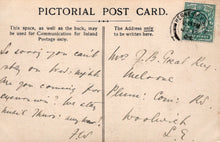 PICTORIAL POST CARD.
This space, as well as the back, may
be used for Communication for Inland
Postage only.
The Address only
to be written here.
So sorry you can't
stay on Wed: night.
Are you coming for
? We stay
until Thurs: any how!
Mrs J. B. Geat Key
Melrose
Plum: Com: Rd
Woolwich
S.E.